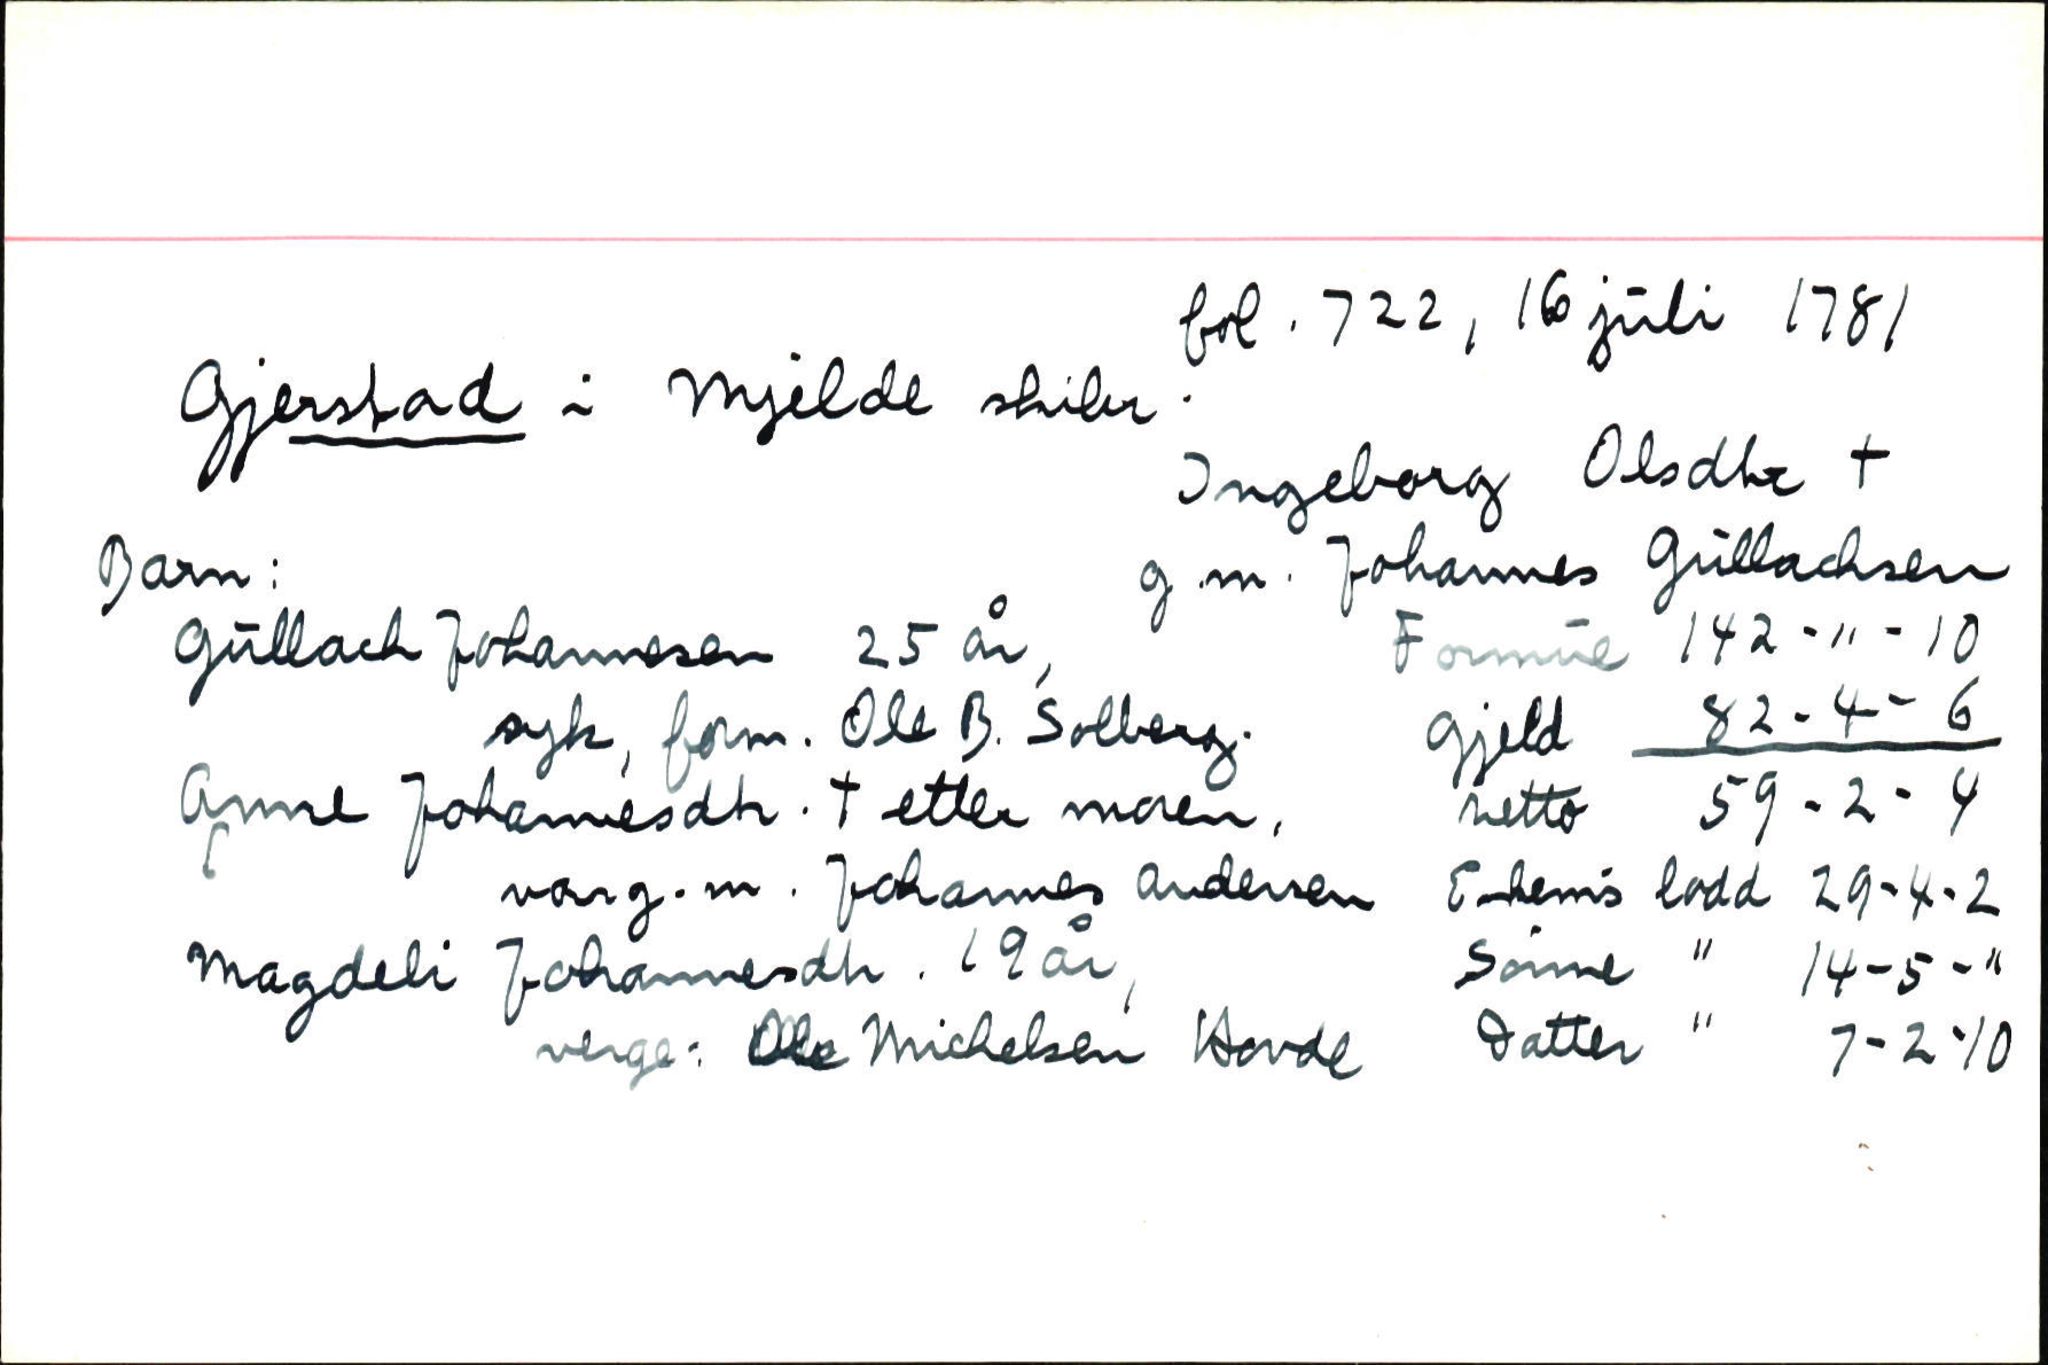 fol. 722, 16 juli 1781
Gjerstad i Mjelde skibr.
Ingeborg Olsdtr †
Barn:
g.m. Johannes Gullachsen
Gullach Johannesen 25 år, Formue 142-"-10
syk, form. Ole B. Solberg. Gjeld 82-4-6
Anne Johannesdtr. † etter moren, netto 59-2-4
var g.m. Johannes Andersen E-kem's lodd 29-4-2
Magdeli Johannesdtr. 19 år, Sønne " 14-5-"
verge: Ole Michelsen Hovde Datter " 7-2-10